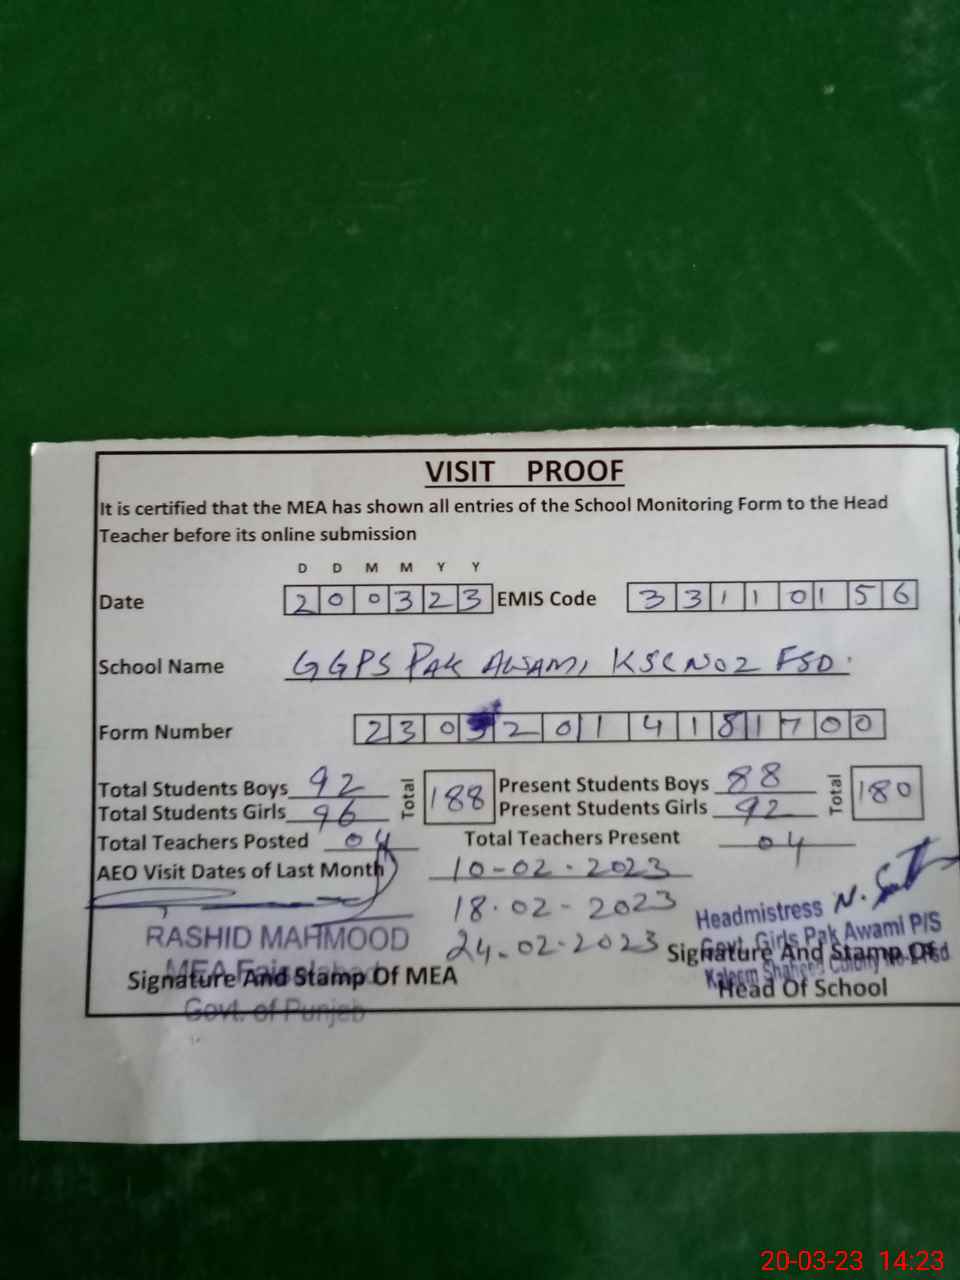 VISIT PROOF
It is certified that the MEA has shown all entries of the School Monitoring Form to the Head
Teacher before its online submission
D D M M Y Y
Date 2 0 0 3 2 3 EMIS Code 3 3 1 1 0 1 5 6
School Name GGPS PAK AWAMI, KSC NO2 FSD.
Form Number 2 3 0 3 2 0 1 4 1 8 1 7 0 0
Total Students Boys 92 Total 188 Present Students Boys 88 Total 180
Total Students Girls 96 Present Students Girls 92
Total Teachers Posted 04 Total Teachers Present 04
AEO Visit Dates of Last Month 10-02-2023
18.02-2023
24-02-2023
RASHID MAHMOOD
MEA Faisalabad
Govt. of Punjab
Signature And Stamp Of MEA
Headmistress
Govt. Girls Pak Awami P/S
Kaleem Shaheed Colony
Signature And Stamp Of
Head Of School
20-03-23 14:23